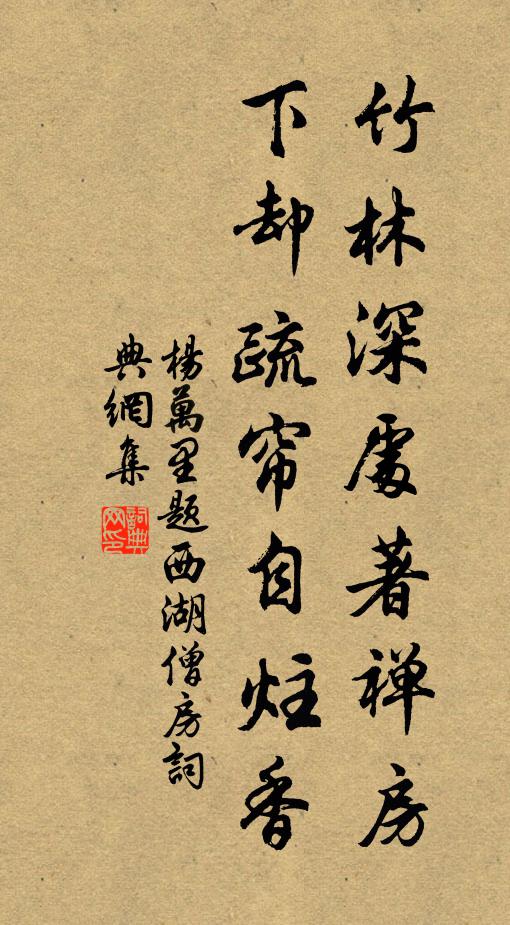 竹林深處著禅房
下却疏帘自炷香
楊萬里题西湖僧房詞
典網集
詞典
网印